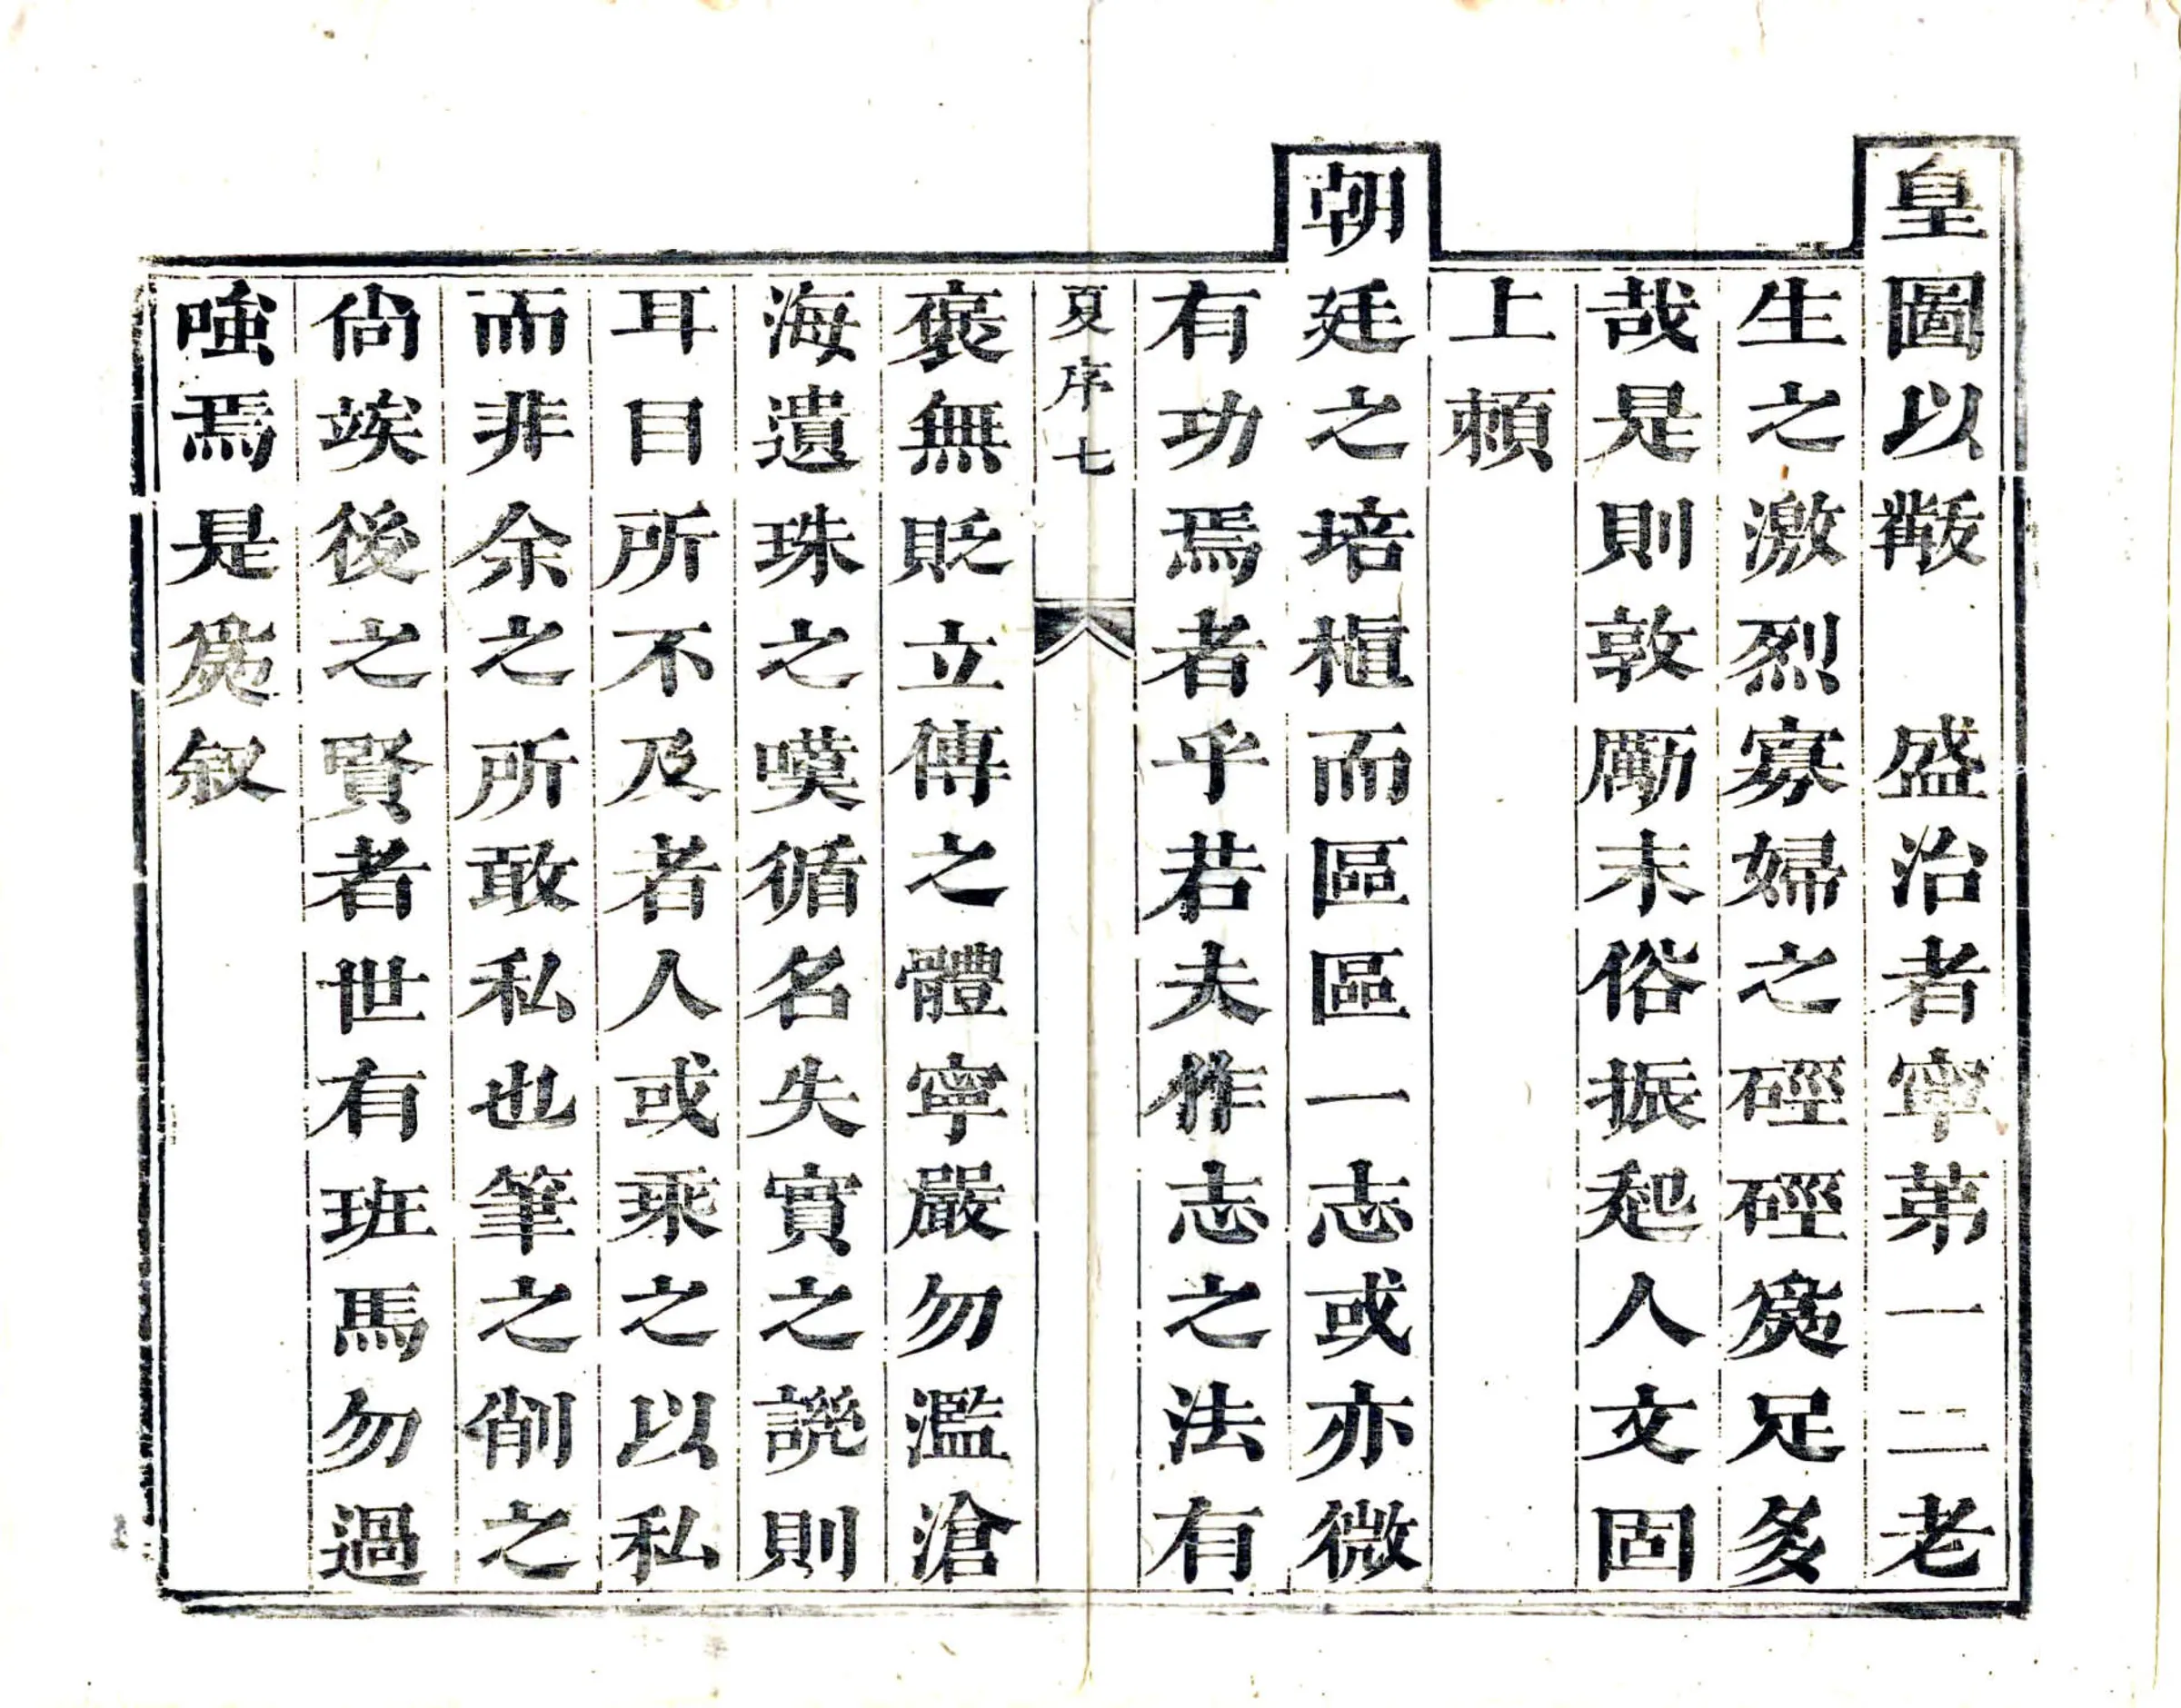 皇圖以黼　盛治者寧第一二老
生之激烈寡婦之硜硜爲足多
哉是則敦勵末俗振起人文固
上賴
朝廷之培植而區區一志或亦微
有功焉者乎若夫作志之法有
夏序七
褒無貶立傳之體寧嚴勿濫滄
海遺珠之嘆循名失實之譏則
耳目所不及者人或乘之以私
而非余之所敢私也筆之削之
尙竢後之賢者世有班馬勿過
嗤焉是爲叙